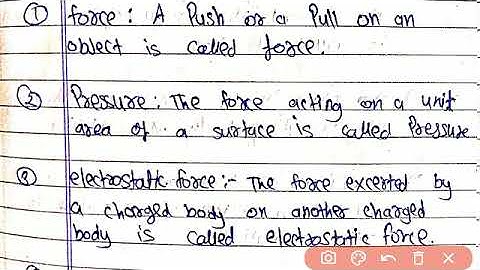 ① force : A Push or a Pull on an
object is called force.
② Pressure : The force acting on a unit
area of a surface is called Pressure
③ electrostatic force :- The force excerted by
a charged body on another charged
body is called electrostatic force.